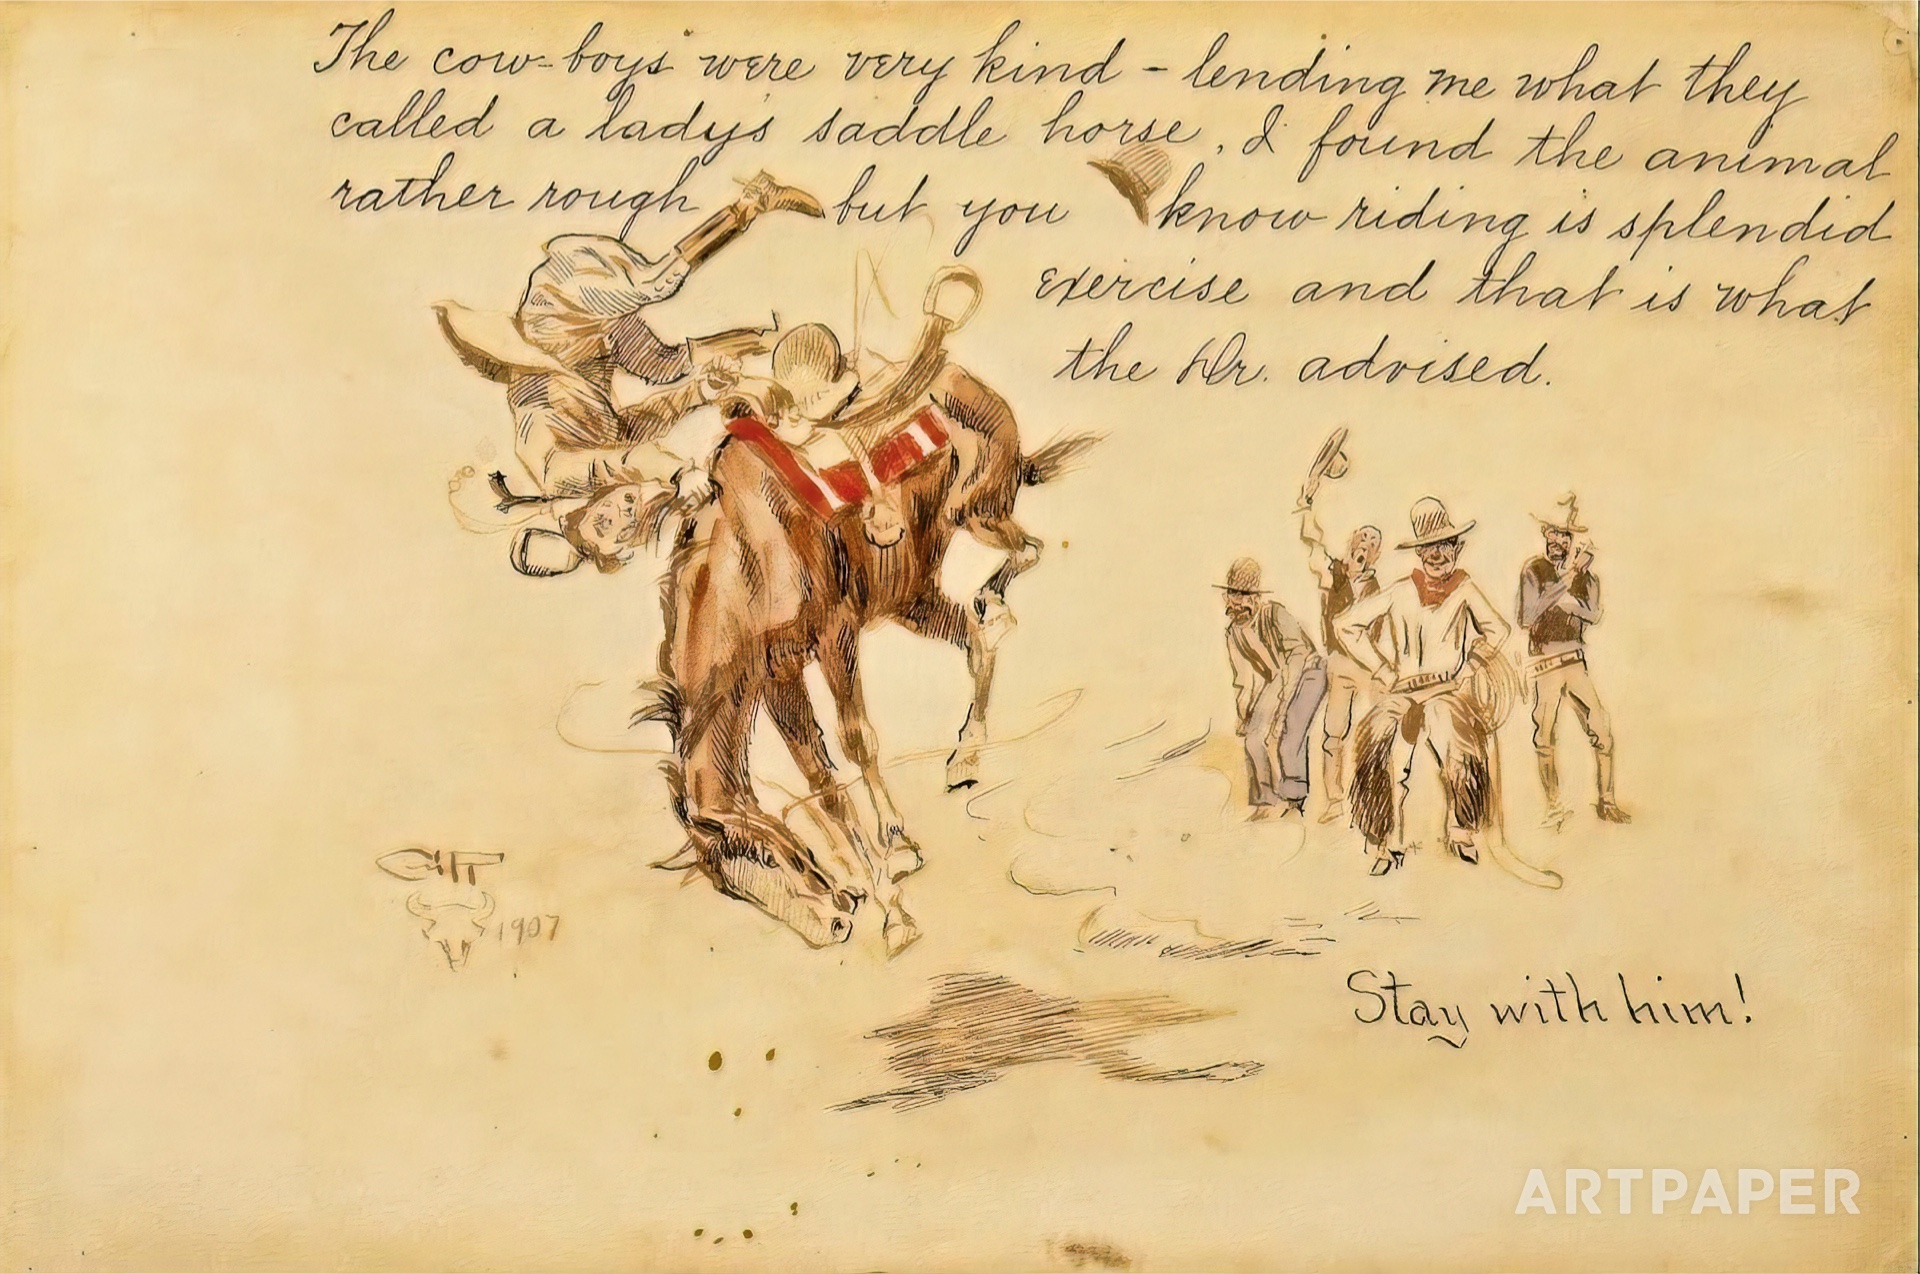 The cow-boys were very kind - lending me what they
called a ladys saddle horse, I found the animal
rather rough but you know riding is splendid
exercise and that is what
the Dr. advised.
1907
Stay with him!
ARTPAPER